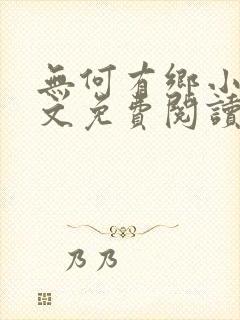 無何有鄉小
文免費閱讀
乃乃